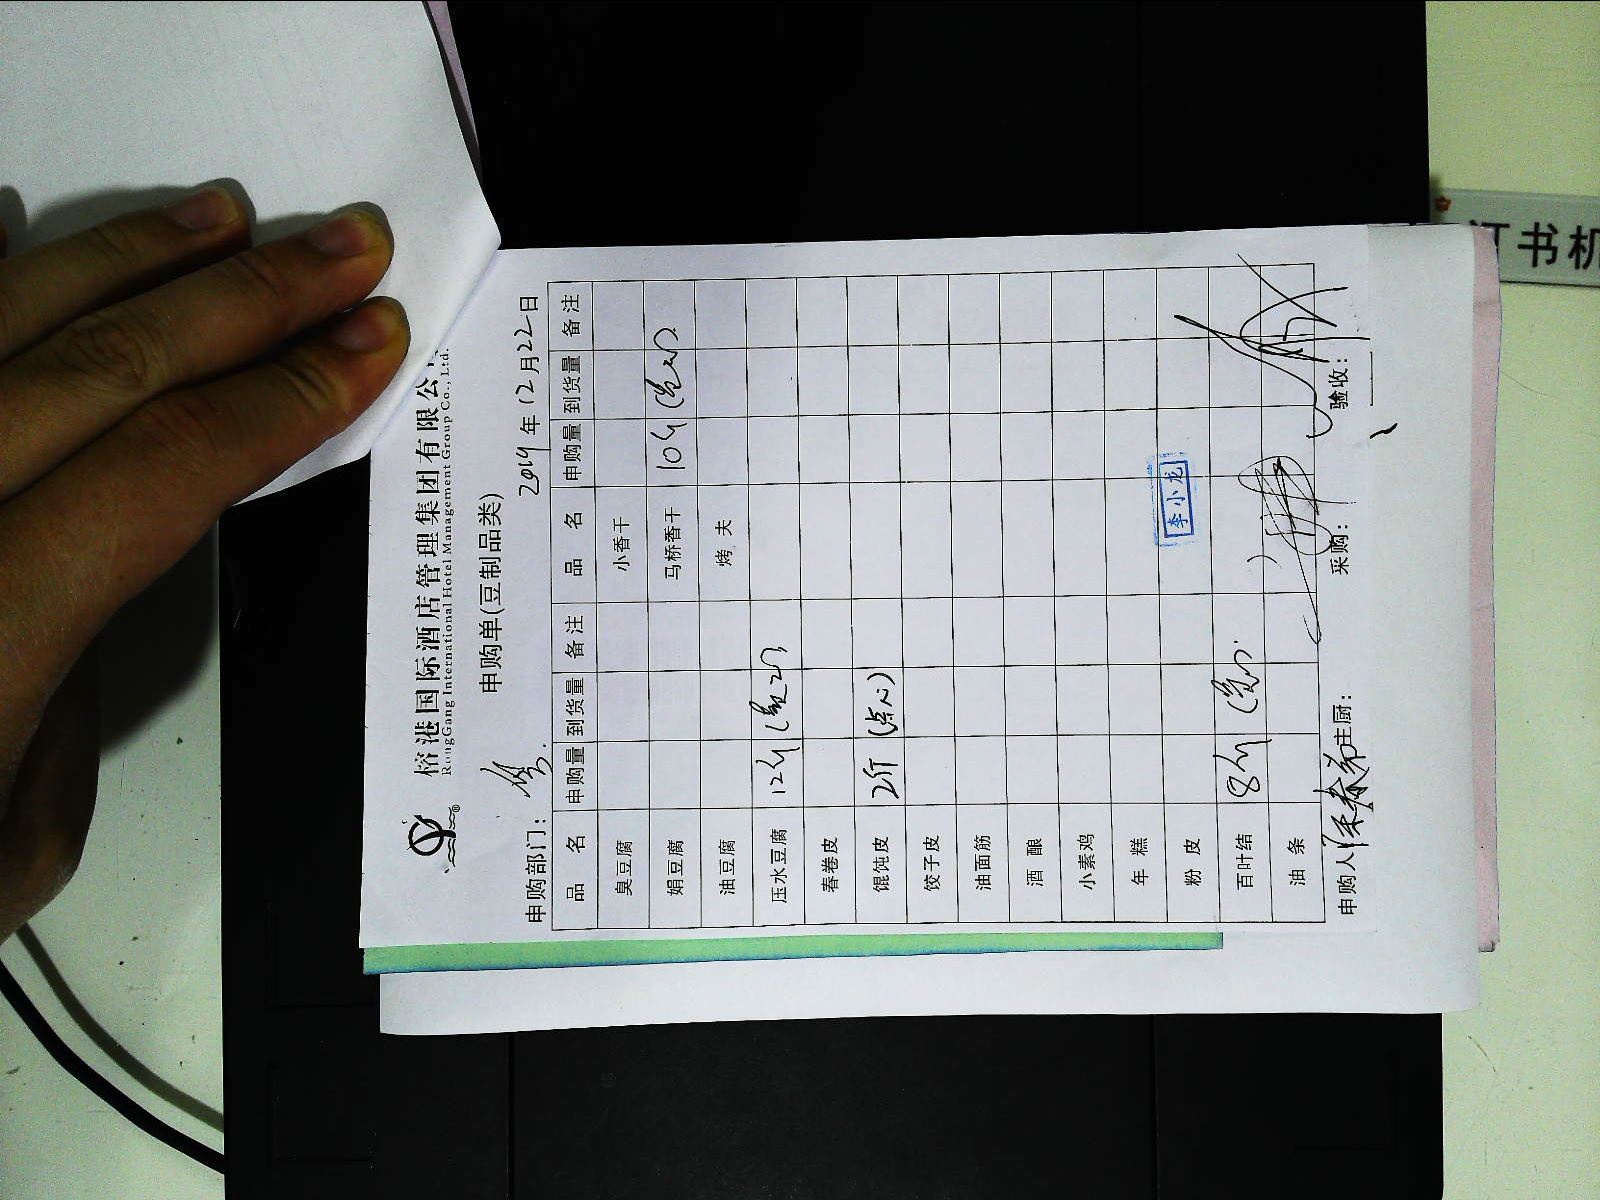 榕港国际酒店管理集团有限公
RongGang International Hotel Management Group Co., Ltd.
申购单(豆制品类)
申购部门： 2019年12月22日
品 名 申购量 到货量 备注 品 名 申购量 到货量 备注
臭豆腐 小香干
娟豆腐 马桥香干 10
油豆腐 烤 夫
压水豆腐 12
春卷皮
馄饨皮 2斤 (点心)
饺子皮
油面筋
酒 酿
小素鸡
年 糕
粉 皮 李小龙
百叶结 8
油 条
申购人 主厨： 采购： 验收：
订书机